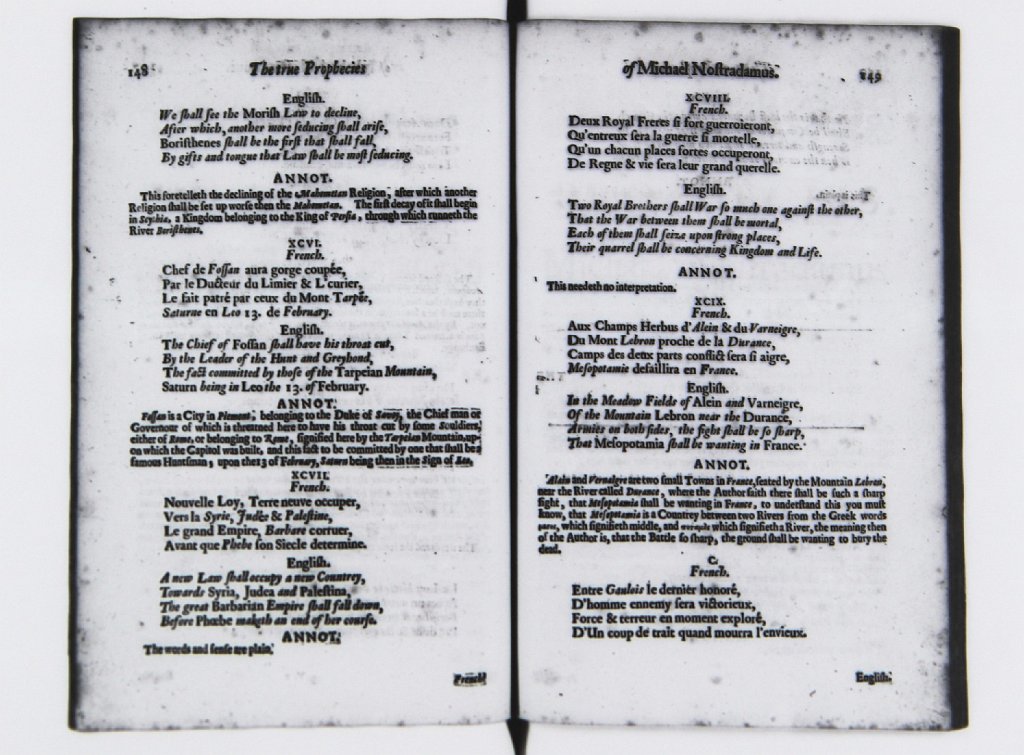 148 The true Prophecies
English.
We ſhall ſee the Moriſh Law to decline,
After which, another more ſeducing ſhall ariſe,
Boriſthenes ſhall be the firſt that ſhall fall,
By gifts and tongue that Law ſhall be moſt ſeducing.
ANNOT.
This foretelleth the declining of the Mahometan Religion, after which another
Religion ſhall be ſet up worſe then the Mahometan. The firſt decay of it ſhall begin
in Scythia, a Kingdom belonging to the King of Perſia, through which runneth the
River Boriſthenes.
XCVI.
French.
Chef de Foſſan aura gorge coupée,
Par le Ducteur du Limier & L'curier,
Le fait patré par ceux du Mont Tarpée,
Saturne en Leo 13. de February.
English.
The Chief of Foſſan ſhall have his throat cut,
By the Leader of the Hunt and Greyhond,
The fact committed by thoſe of the Tarpeian Mountain,
Saturn being in Leo the 13. of February.
ANNOT.
Foſſan is a City in Piemont, belonging to the Duke of Savoy, the Chief man or
Governour of which is threatned here to have his throat cut by ſome Souldiers,
either of Rome, or belonging to Rome, ſignified here by the Tarpeian Mountain, up-
on which the Capitol was built, and this fact to be committed by one that ſhall be a
famous Huntſman, upon the 13 of February, Saturn being then in the Sign of Leo.
XCVII.
French.
Nouvelle Loy, Terre neuve occuper,
Vers la Syrie, Judée & Paleſtine,
Le grand Empire, Barbare corruer,
Avant que Phebe ſon Siecle determine.
English.
A new Law ſhall occupy a new Countrey,
Towards Syria, Judea and Paleſtina,
The great Barbarian Empire ſhall fall down,
Before Phœbe maketh an end of her courſe.
ANNOT.
The words and ſenſe are plain.
French
of Michael Noſtradamus. 149
XCVIII.
French.
Deux Royal Freres ſi fort guerroieront,
Qu'entreux ſera la guerre ſi mortelle,
Qu'un chacun places fortes occuperont,
De Regne & vie ſera leur grand querelle.
English.
Two Royal Brothers ſhall War ſo much one againſt the other,
That the War between them ſhall be mortal,
Each of them ſhall ſeize upon ſtrong places,
Their quarrel ſhall be concerning Kingdom and Life.
ANNOT.
This needeth no interpretation.
XCIX.
French.
Aux Champs Herbus d'Alein & du Varneigre,
Du Mont Lebron proche de la Durance,
Camps des deux parts conflict ſera ſi aigre,
Meſopotamie defaillira en France.
English.
In the Meadow Fields of Alein and Varneigre,
Of the Mountain Lebron near the Durance,
Armies on both ſides, the fight ſhall be ſo ſharp,
That Meſopotamia ſhall be wanting in France.
ANNOT.
Alein and Vernaigre are two ſmall Towns in France, ſeated by the Mountain Lebron,
near the River called Durance, where the Author ſaith there ſhall be ſuch a ſharp
fight, that Meſopotamia ſhall be wanting in France, to underſtand this you muſt
know, that Meſopotamia is a Country between two Rivers from the Greek words
which ſignifieth middle, and which ſignifieth a River, the meaning then
of the Author is, that the Battle ſo ſharp, the ground ſhall be wanting to bury the
dead.
C.
French.
Entre Gaulois le dernier honoré,
D'homme ennemy ſera victorieux,
Force & terreur en moment exploré,
D'Un coup de trait quand mourra l'envieux.
English.